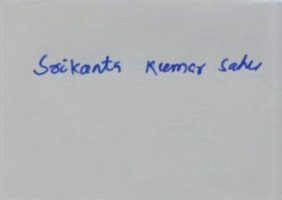 Srikanta Kumar Sahu